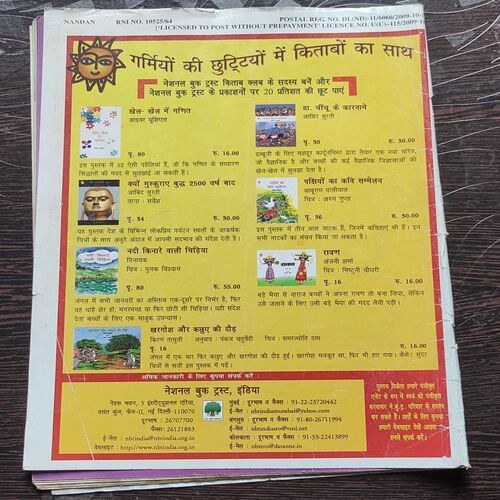 NANDAN RNI NO. 10525/64 POSTAL REG. NO. DL(ND)-11/6060/2009-10-
['LICENSED TO POST WITHOUT PREPAYMENT' LICENCE NO. U(C)-115/2009-
गर्मियों की छुट्टियों में किताबों का साथ
नेशनल बुक ट्रस्ट किताब क्लब के सदस्य बनें और
नेशनल बुक ट्रस्ट के प्रकाशनों पर 20 प्रतिशत की छूट पाएं
खेल- खेल में गणित
आइवर यूशिएल
पृ. 80 रु. 16.00
इस पुस्तक में 52 ऐसी पहेलियां हैं, जो कि गणित के साधारण
सिद्धांतों की मदद से सुलझाई जा सकती हैं।
डा. चींचू के कारनामे
आबिद सुरती
पृ. 50 रु. 50.00
डब्बूजी के लिए मशहूर कार्टूनिस्ट द्वारा तैयार एक नया चरित्र,
जो वैज्ञानिक है और बच्चों की कई वैज्ञानिक जिज्ञासाओं को
खेल-खेल में सुलझा देता है।
क्यों मुस्कुराए बुद्ध 2500 वर्ष बाद
आबिद सुरती
छाया : सर्वेश
पृ. 54 रु. 50.00
यह पुस्तक देश के विभिन्न लोकप्रिय पर्यटन स्थलों के आकर्षक
चित्रों के साथ अनूठे अंदाज में आपसी सदभाव की संदेश देती है।
पक्षियों का कवि सम्मेलन
दाबूराम पालीवाल
चित्र : अरुप गुप्ता
पृ. 56 रु. 50.00
इस पुस्तक में तीन बाल नाटक हैं, जिनमें कविताएं भी हैं। इन
सभी नाटकों का मंचन किया जा सकता है।
नदी किनारे वाली चिड़िया
विनायक
चित्र : पुलक विश्वास
पृ. 80 रु. 55.00
जंगल में सभी जानवरों का अस्तित्व एक-दूसरे पर निर्भर है, फिर
वह चाहे शेर हो, मगरमच्छ या फिर छोटी सी चिड़िया। वही संदेश
देता बच्चों के लिए एक भावुक उपन्यास।
रावण
अंजनी शर्मा
चित्र : मिष्टुनी चौधरी
पृ. 16 रु. 16.00
बड़े भैया से नाराज बच्चों ने अपना रावण तो बना लिया, लेकिन
उसे जलाने के लिए उसी बड़े भैया की मदद लेनी पड़ी।
खरगोश और कछुए की दौड़
किरण तामुली अनुवाद : पंकज चतुर्वेदी चित्र : समरज्योति दास
पृ. 16 रु. 16.00
जंगल में एक बार फिर कछुए और खरगोश की दौड़ हुई। खरगोश मजबूत था, फिर भी हार गया। कैसे। सुंदर
चित्रों से सजी इस पुस्तक में पढ़ें।
अधिक जानकारी के लिए कृपया संपर्क करें :
नेशनल बुक ट्रस्ट, इंडिया
नेहरू भवन, 5 इंस्टीट्यूशनल एरिया,
वसंत कुंज, फेज-II, नई दिल्ली-110070
दूरभाष : 26707700
फैक्स : 26121883
ई-मेल : nbtindia@nbtindia.org.in
वेबसाइट : http://www.nbtindia.org.in
मुंबई : दूरभाष व फैक्स : 91-22-23720442
ई-मेल : nbtindiamumbai@yahoo.com
बंगलुरु : दूरभाष व फैक्स : 91-80-26711994
ई-मेल : nbtindiasro@vsnl.net
कोलकाता : दूरभाष व फैक्स : 91-33-22413899
ई-मेल : nbtero@dataone.in
पुस्तक विक्रेता हमारे पंजीकृत
एजेंट के रूप में स्वयं को पंजीकृत
करवाकर ने.बु.ट्र. परिवार के सदस्य
बन सकते हैं। शर्तों के लिए कृपया
हमारी वेबसाइट देखें अथवा
हमसे संपर्क करें।